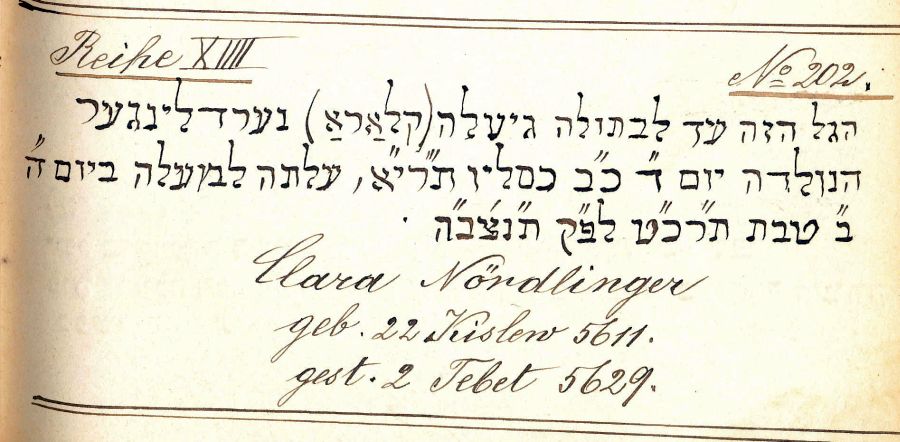 Reihe XIIII
No 202.
הגל הזה עד לבתולה גיעלה (קלאַראַ) נערדלינגער
הנולדה יום ד״ כ״ב כסליו ת״רי״א, עלתה למעלה ביום ה״
ב״ טבת ת״רכ״ט לפ״ק ת״נ״צ״ב״ה.
Clara Nördlinger
geb. 22 Kislew 5611.
gest. 2 Tebet 5629.